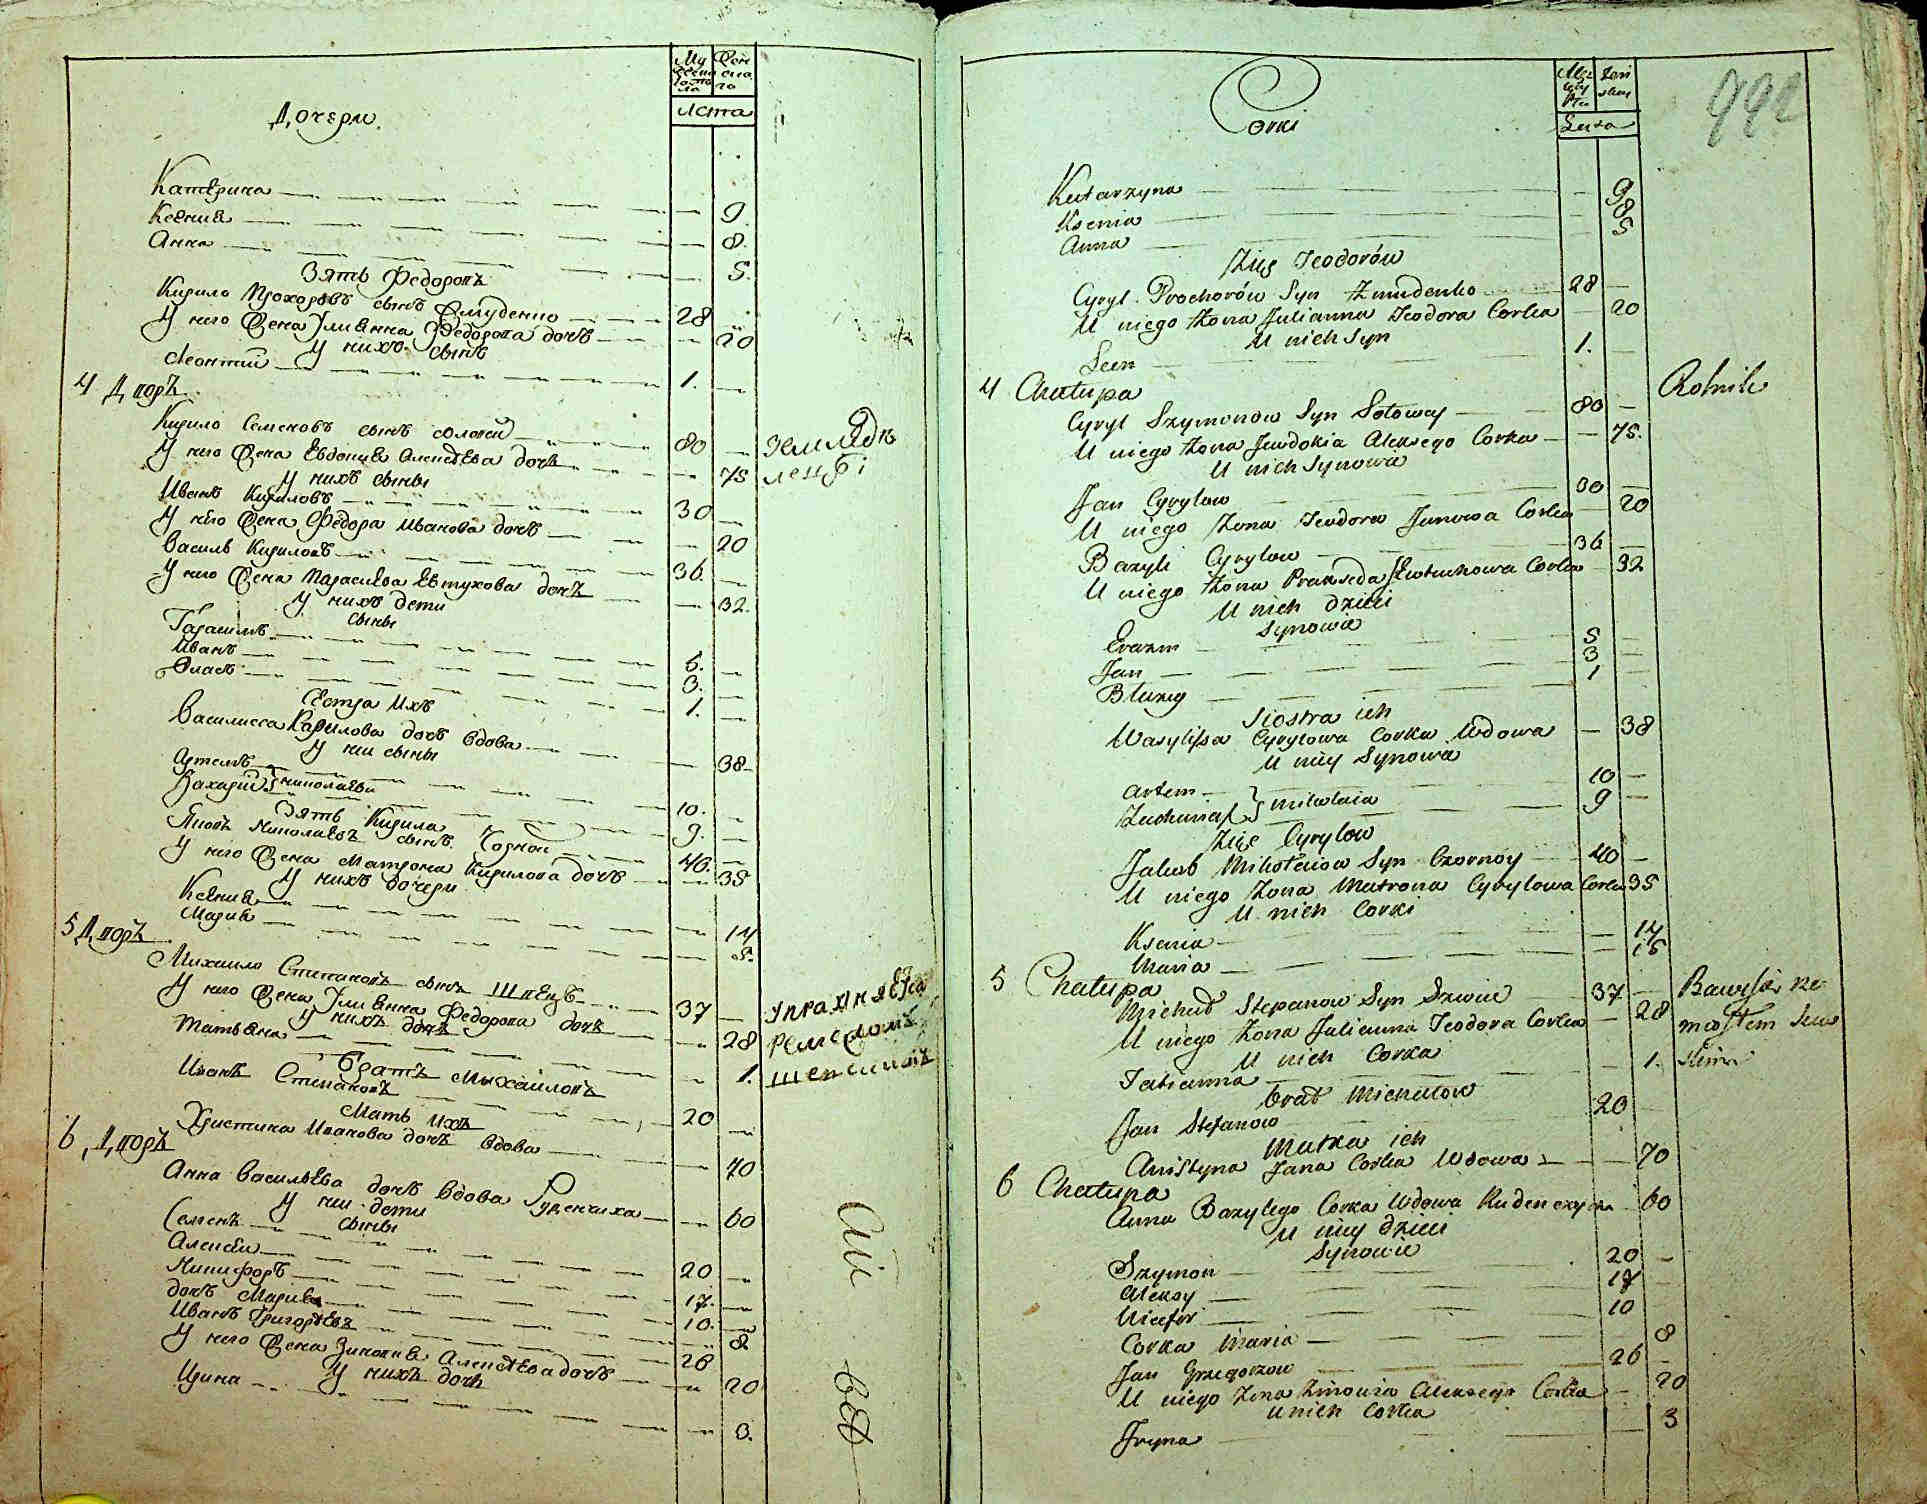 Дочери
Му
жеска
Жен
ска
го
Лета
Катерина 9
Ксения 8.
Анна 5.
Зять Федоровъ
Кирило Прохоровъ сынъ Жмуденко 28
У него Жена Улиянна Федорова дочь 20
У нихъ сынъ
Леонтий 1.
4 Дворъ
Кирило Семеновъ сынъ Соловей 80 Земледѣ
У него Жена Евдокия Алексѣева дочь 75 лецъ
У нихъ сыны
Иванъ Кириловъ 30
У него Жена Федора Иванова дочь 20
Василь Кириловъ 36.
У него Жена Параскева Евтухова дочь 32.
У нихъ дети
сыны
Гарасимъ 6.
Иванъ 3.
Власъ 1.
Сестра Ихъ
Василисса Кирилова дочь вдова 38
У ней сыны
Артемъ 10.
Захарий } Николаеви 9.
Зять Кирила
Яковъ Николаевъ сынъ Чорной 40.
У него Жена Матрона Кирилова дочь 35
У нихъ дочери
Ксения 14
Мария 5.
5 Дворъ
Михайло Степановъ сынъ Швецъ 37 Упражняется
У него Жена Улиянна Федорова дочь 28 ремесломъ
У нихъ дочь
Татьяна 1.
Братъ Михайловъ
Иванъ Степановъ 20
Мать Ихъ
Христина Иванова дочь вдова 70
6, Дворъ
Анна Васильева дочь вдова Руденчиха 60
У ней дети
сыны
Семенъ 20
Алексей 17.
Никифоръ 10.
дочь Мария 8
Иванъ Григорьевъ 26
У него Жена Зиновия Алексѣева дочь 20
У нихъ дочь
Ирина 3.
Corki
Zeń
skiey
Lata
992
Katarzyna 9
Ksenia 8
Anna 5
Zięć Teodorów
Cyryl Prochorów Syn Zmudenko 28
U niego Żona Julianna Teodora Corka 20
U nich Syn
Leon 1.
4 Chatupa Rolnik
Cyryl Szymonow Syn Sołowey 80
U niego Żona Jewdokia Alexego Corka 75.
U nich Synowie
Jan Cyrylow 30
U niego Żona Teodora Janowa Corka 20
Bazyli Cyrylow 36
U niego Żona Prakseda Jewtuchowa Corka 32
U nich dzieci
Synowie
Erazm 5
Jan 3
Błazey 1
Siostra ich
Wasylissa Cyrylowa Corka Wdowa 38
U niey Synowie
Artem 10
Zachariasz } Mikołaia 9
Zięć Cyrylow
Jakub Mikołaiow Syn Czornoy 40
U niego Żona Matrona Cyrylowa Corka 35
U nich Corki
Ksenia 14
Maria 15
5 Chatupa
Michał Stepanow Syn Szwiec 37 Bawi się rze
U niego Żona Julianna Teodora Corka 28
U nich Corka
Tatianna 1.
brat Michałow
Jan Stefanow 20
Matka ich
Christyna Jana Corka Wdowa 70
6 Chatupa
Anna Bazylego Corka Wdowa Rudenczycha 60
U niey dzieci
Synowie
Szymon 20
Alexy 17
Nicefor 10
Corka Maria 8
Jan Grzegorzow 26
U niego Żona Zinowia Alexego Corka 20
U nich Corka
Jryna 3